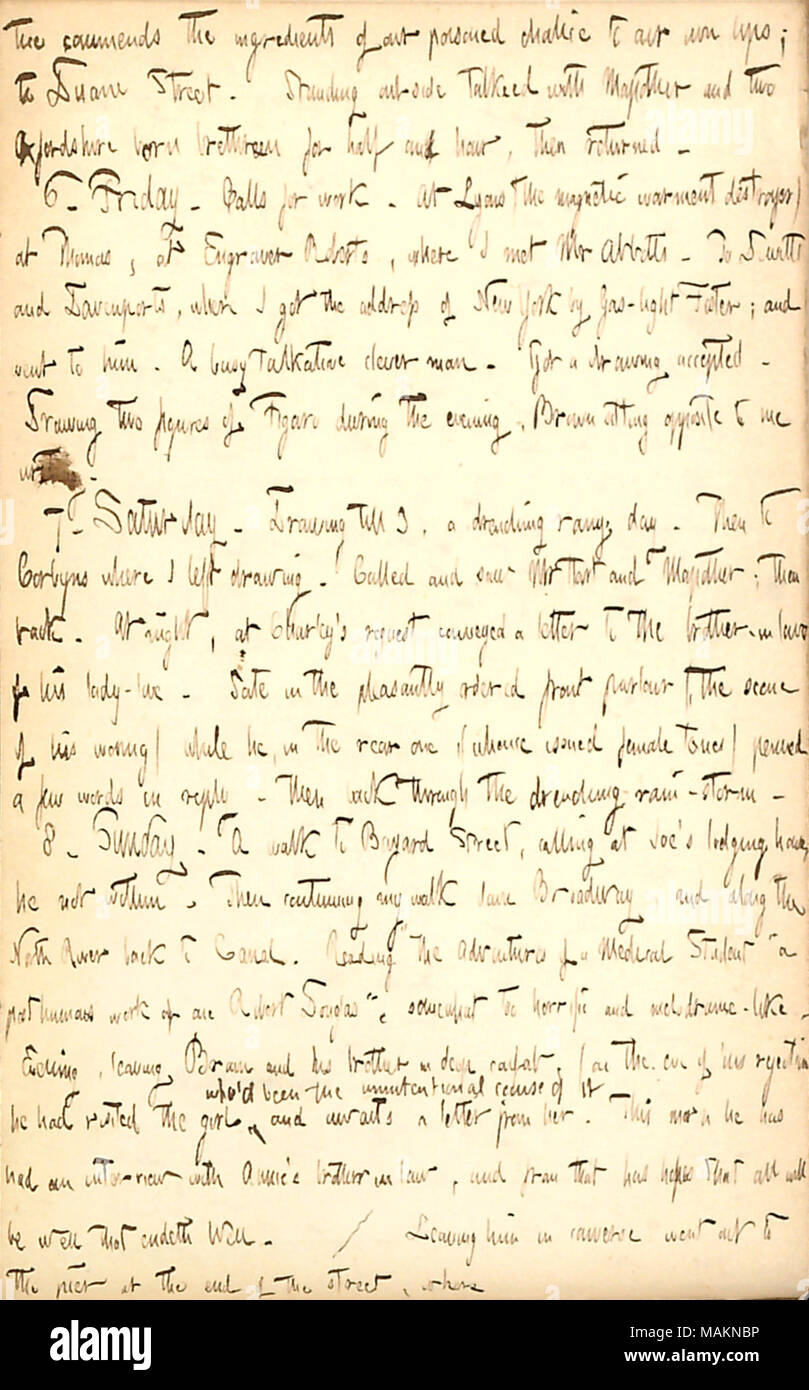 tice commends the ingredients of our poisoned chalice to our own lips;
to Duane Street. Standing outside talked with Mapother and two
Oxfordshire born brethren for half an hour, then returned.
6. Friday. Calls for work. At Lyons (the magnetic varment destroyer)
at Thomas, at Engraver Roberts, where I met Mr Abbotts. To Dewitts
and Davenports, where I got the address of New York by Gas-light Foster; and
went to him. A busy talkative clever man. Got a drawing accepted.
Drawing two figures of Figaro during the evening, Brown sitting opposite to me
7. Saturday. Drawing till 3, a drenching rainy day. Then to
Corbyns where I left drawing. Called and saw Mr Hart and Mapother; then
back. At night, at Charley's request conveyed a letter to the brother-in-law
of his lady-love. Sate in the pleasantly ordered front parlour (the scene
of his wooing) while he, in the rear one (whence issued female tones) penned
a few words in reply. Then back through the drenching rain-storm.
8. Sunday. A walk to Bayard Street, calling at Joe's lodging house,
he not within. Then continuing my walk down Broadway and along the
North River back to Canal. Reading "the Adventures of a Medical Student" a
posthumous work of one Robert Douglas; somewhat too horrific and melodrame-like.
Evening, leaving Brown and his brother in deep confab, (on the eve of his rejection
who'd been the unintentional cause of it
he had visited the girl, and awaits a letter from her. This morn he has
had an inter-view with Annie's brother in law, and from that has hopes that all will
be well that endeth Well. / Leaving him in converse went out to
the pier at the end of the street, where
alamy
Image ID: MAKNBP
www.alamy.com